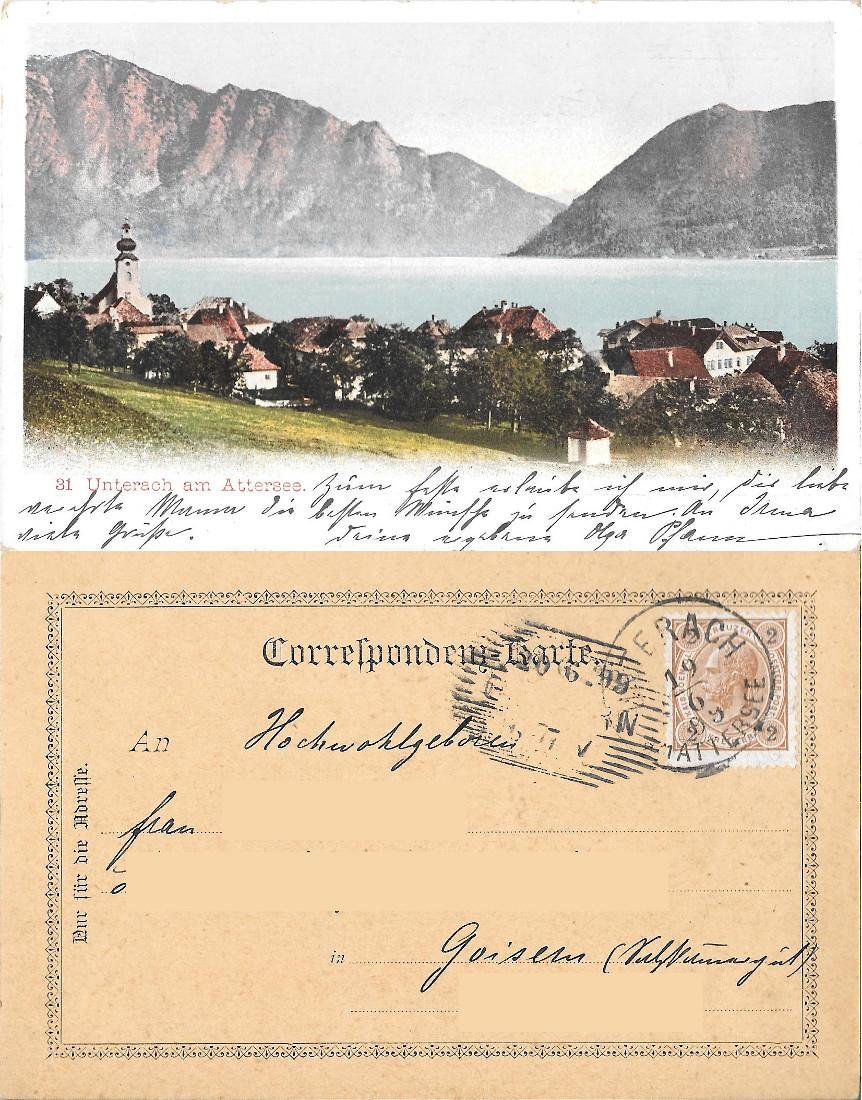 31 Unterach am Attersee. Zum Feste erlaube ich mir, die liebe
verehrte Mama die besten Wünsche zu senden. An Irma
viele Grüße. deine ergebene Olga Pfann
Correspondenz-Karte.
20.6.99
ERACH
19/6
ATTERSEE
2 KREUZER 2
2 2
An Hochwohlgeboren
Frau
Nur für die Adresse.
in Goisern (Salzkammergut)